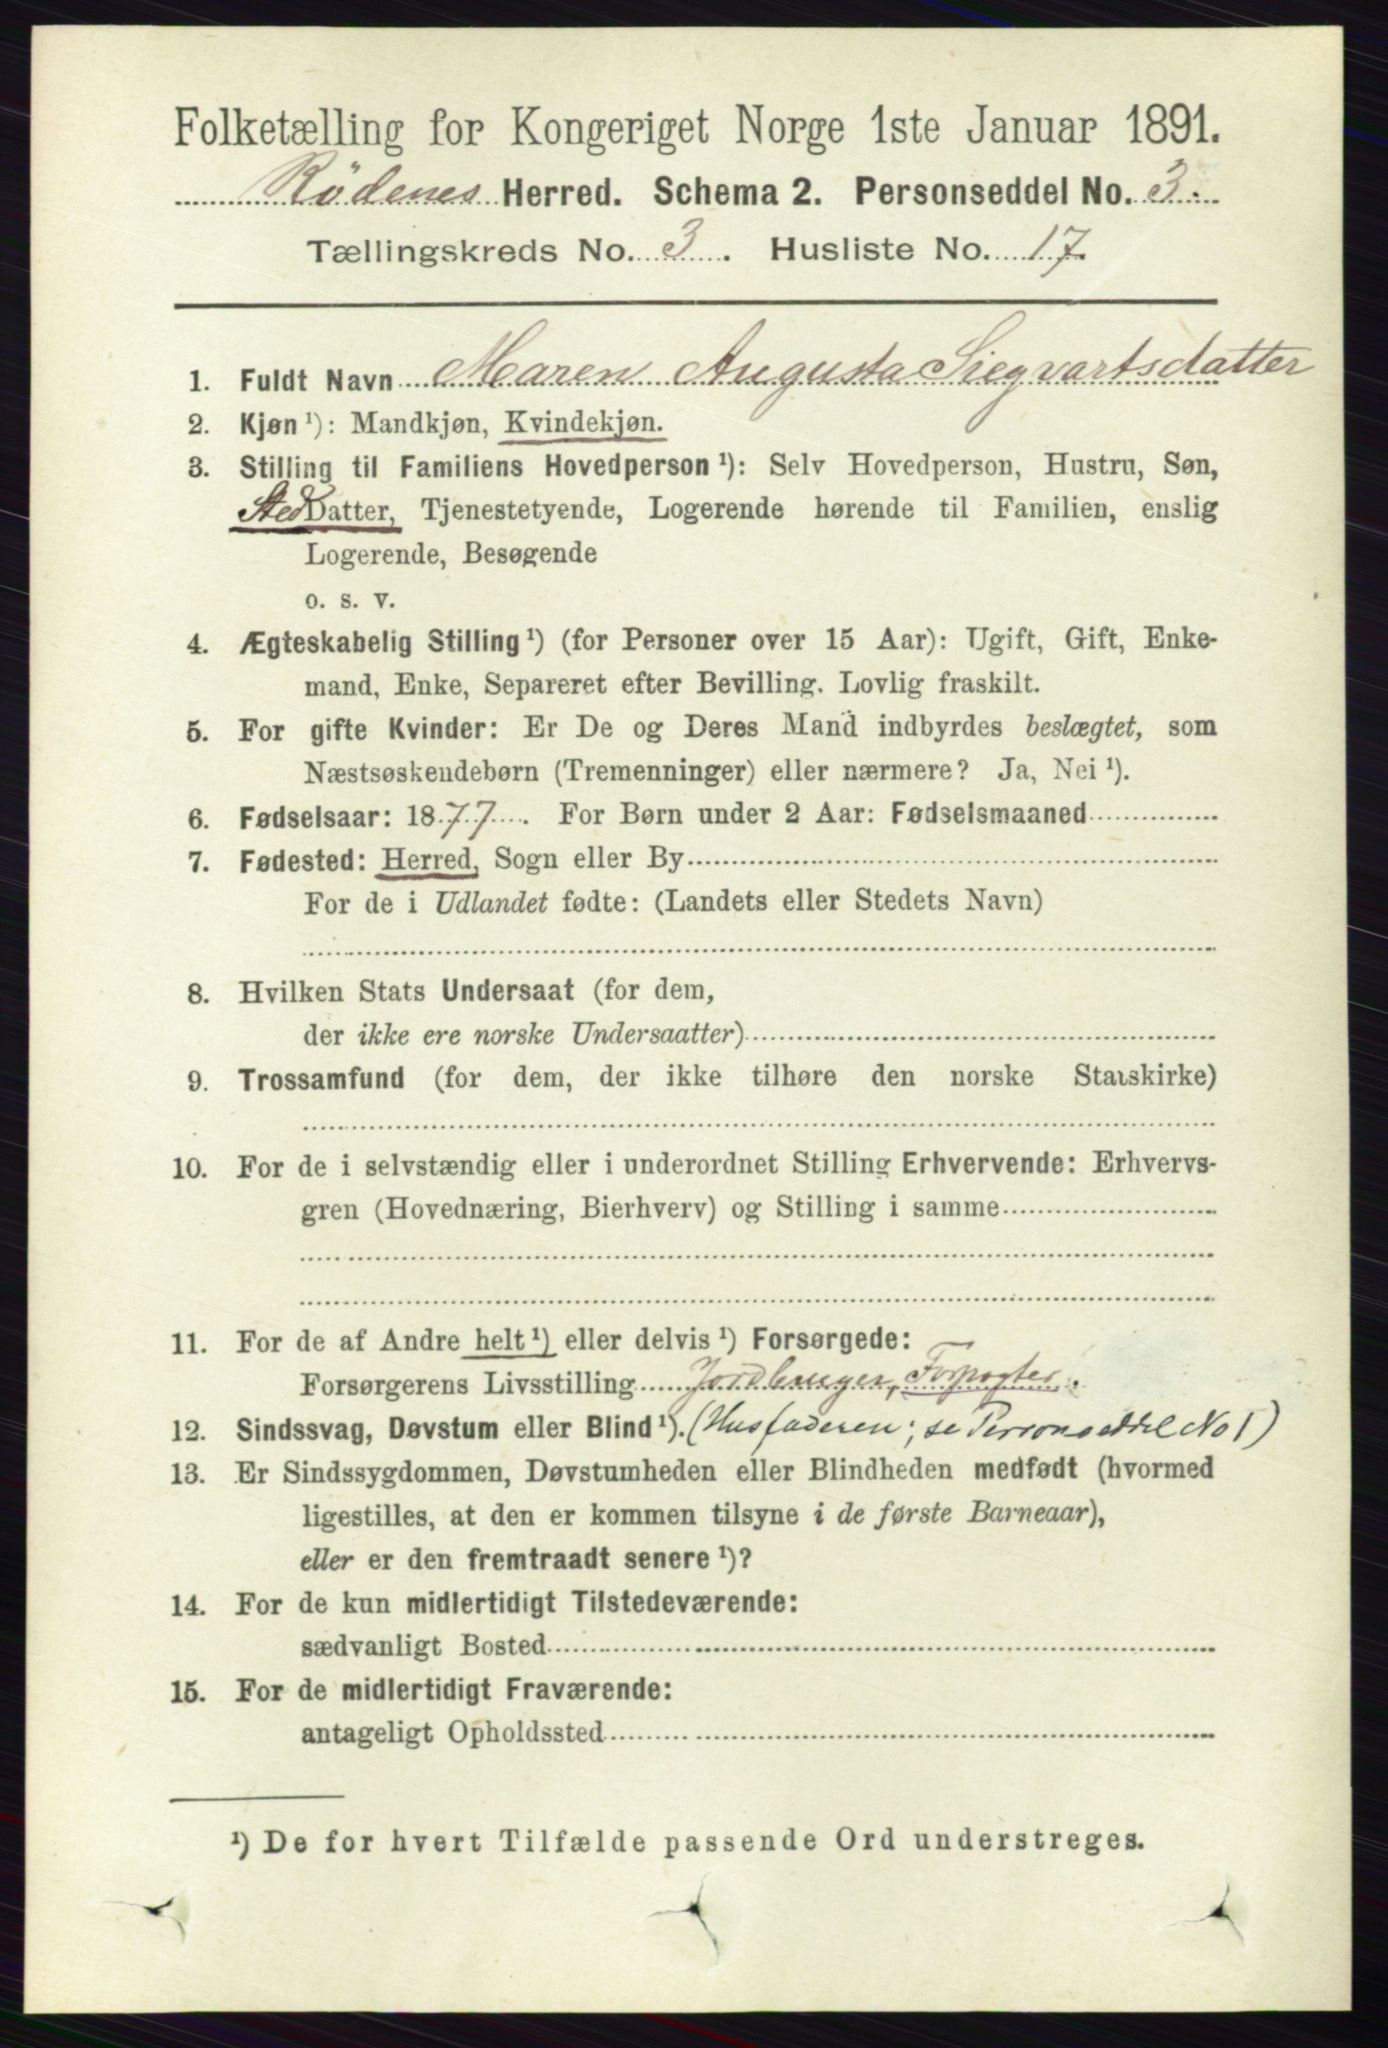 Folketælling for Kongeriget Norge 1ste Januar 1891.
Rödenes Herred. Schema 2. Personseddel No. 3.
Tællingskreds No. 3. Husliste No. 17.
1. Fuldt Navn Maren Augusta Siegvartsdatter
2. Kjøn ¹): Mandkjøn, Kvindekjøn.
3. Stilling til Familiens Hovedperson ¹): Selv Hovedperson, Hustru, Søn,
StedDatter, Tjenestetyende, Logerende hørende til Familien, enslig
Logerende, Besøgende
o. s. v.
4. Ægteskabelig Stilling ¹) (for Personer over 15 Aar): Ugift, Gift, Enke-
mand, Enke, Separeret efter Bevilling. Lovlig fraskilt.
5. For gifte Kvinder: Er De og Deres Mand indbyrdes beslægtet, som
Næstsøskendebørn (Tremenninger) eller nærmere? Ja, Nei ¹).
6. Fødselsaar: 1877. For Børn under 2 Aar: Fødselsmaaned
7. Fødested: Herred, Sogn eller By
For de i Udlandet fødte: (Landets eller Stedets Navn)
8. Hvilken Stats Undersaat (for dem,
der ikke ere norske Undersaatter)
9. Trossamfund (for dem, der ikke tilhøre den norske Statskirke)
10. For de i selvstændig eller i underordnet Stilling Erhvervende: Erhvervs-
gren (Hovednæring, Bierhverv) og Stilling i samme
11. For de af Andre helt ¹) eller delvis ¹) Forsørgede:
Forsørgerens Livsstilling Jordbruger, Forpagter.
12. Sindssvag, Døvstum eller Blind ¹). (Husfaderen; se Personseddel No 1)
13. Er Sindssygdommen, Døvstumheden eller Blindheden medfødt (hvormed
ligestilles, at den er kommen tilsyne i de første Barneaar),
eller er den fremtraadt senere ¹)?
14. For de kun midlertidigt Tilstedeværende:
sædvanligt Bosted
15. For de midlertidigt Fraværende:
antageligt Opholdssted
¹) De for hvert Tilfælde passende Ord understreges.